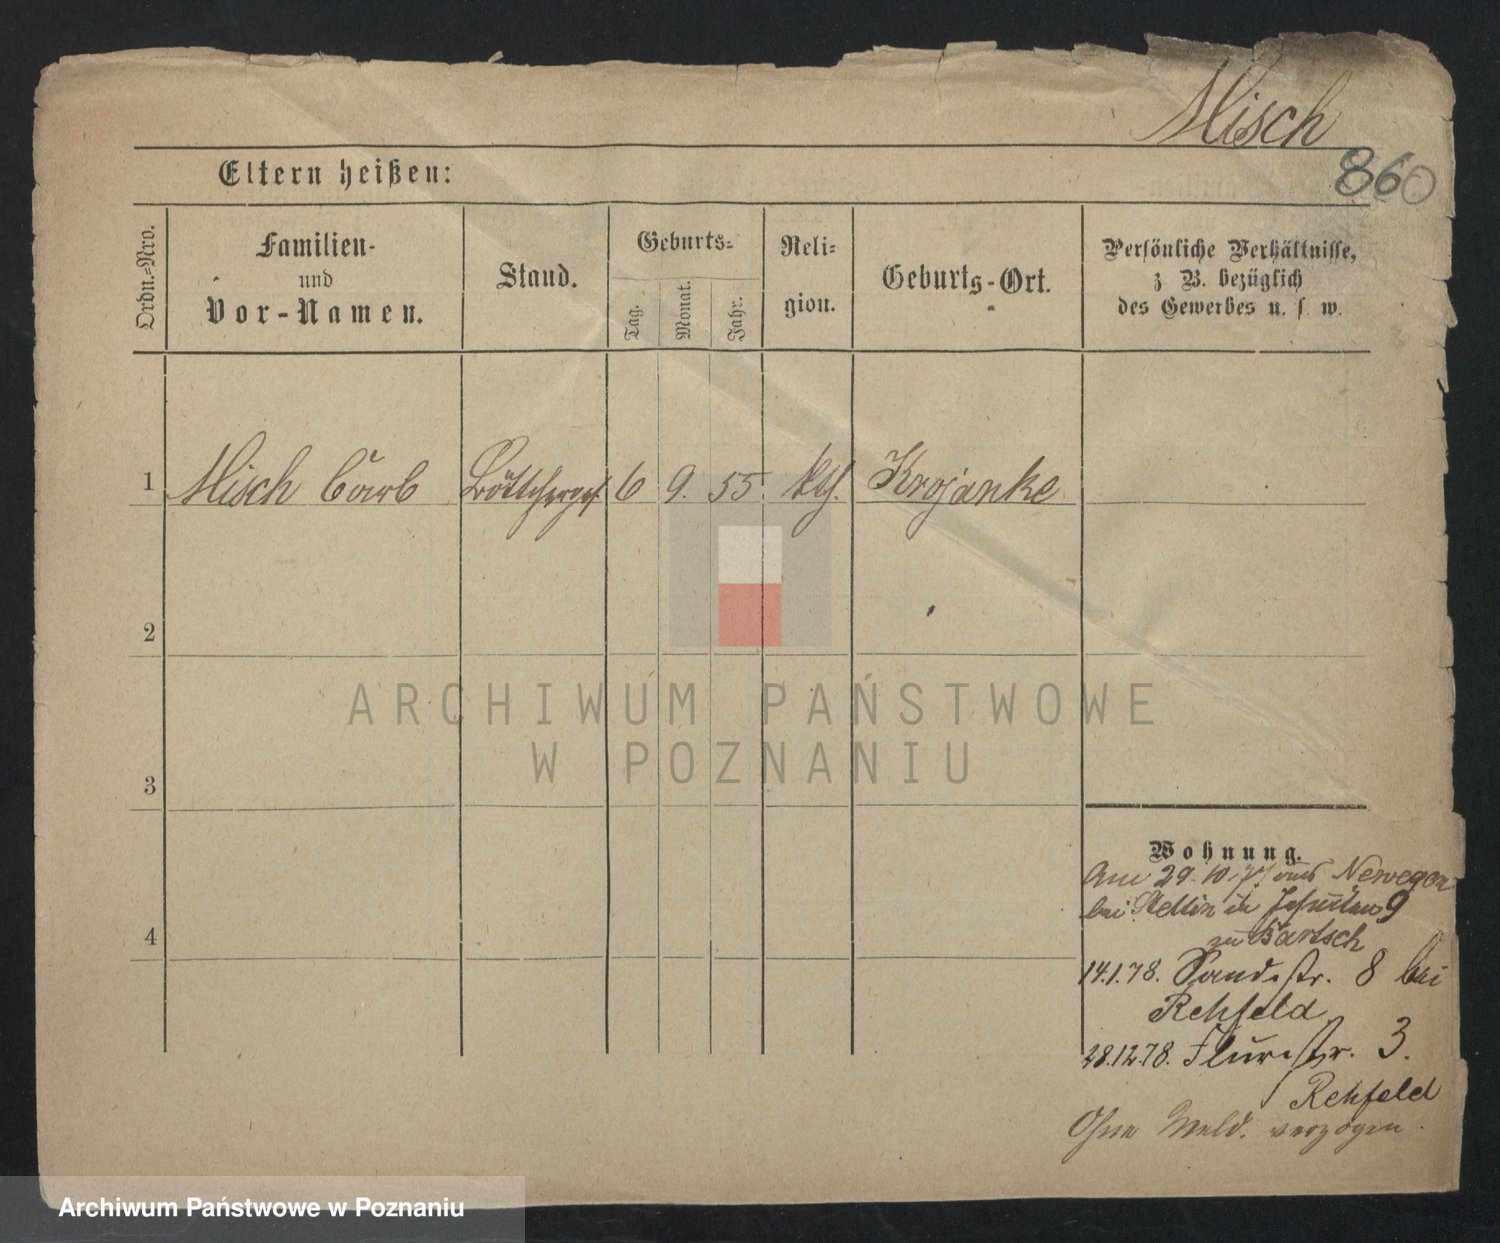 Misch
860
Eltern heißen:
Ordn.=Nro.
Familien-
und
Vor-Namen.
Stand.
Geburts=
Tag.
Monat.
Jahr.
Reli=
gion.
Geburts-Ort.
Persönliche Verhältnisse,
z B. bezüglich
des Gewerbes u. s w.
1 Misch Böttcherges. 6 9. 55. Krojanke
2
3
4
ARCHIWUM PAŃSTWOWE
W POZNANIU
Wohnung.
Am 29.10.77 aus
bei in Jesuiten 9
zu Bartsch
14.1.78. Sandstr. 8 bei
Rehfeld
28.12.78. Flurstr. 3.
Rehfeld
Ohne Meld. verzogen.
Archiwum Państwowe w Poznaniu